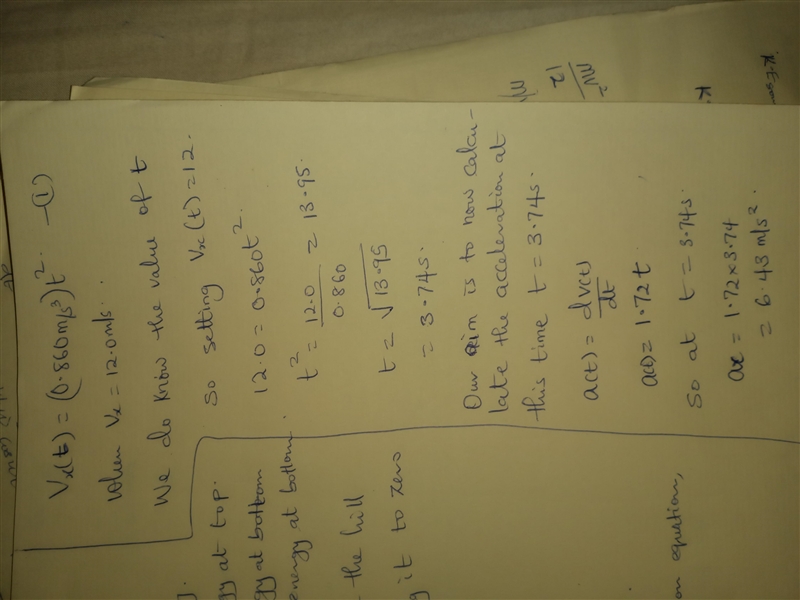 Vx(t) = (0.860m/s³)t². —(1)
When Vx = 12.0m/s.
We do know the value of t
So setting Vx(t) = 12.
12.0 = 0.860t².
t² = 12.0 / 0.860 = 13.95.
t = √13.95
= 3.74s.
Our aim is to now calcu-
late the acceleration at
this time t = 3.74s.
a(t) = dV(t) / dt
a(t) = 1.72t.
So at t = 3.74s.
ax = 1.72×3.74
= 6.43 m/s².
gy at top.
gy at bottom
energy at bottom.
the hill
g it to zero
on equation,